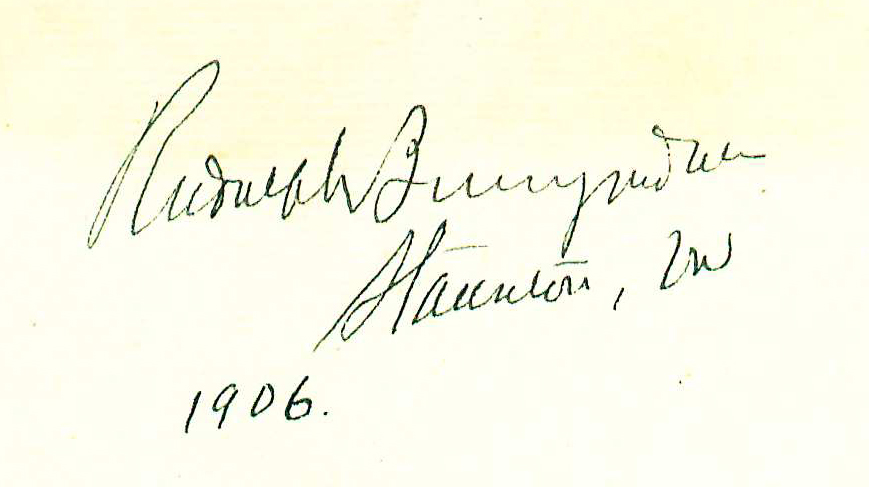 Rudolph Bumgardner
Staunton, Va
1906.